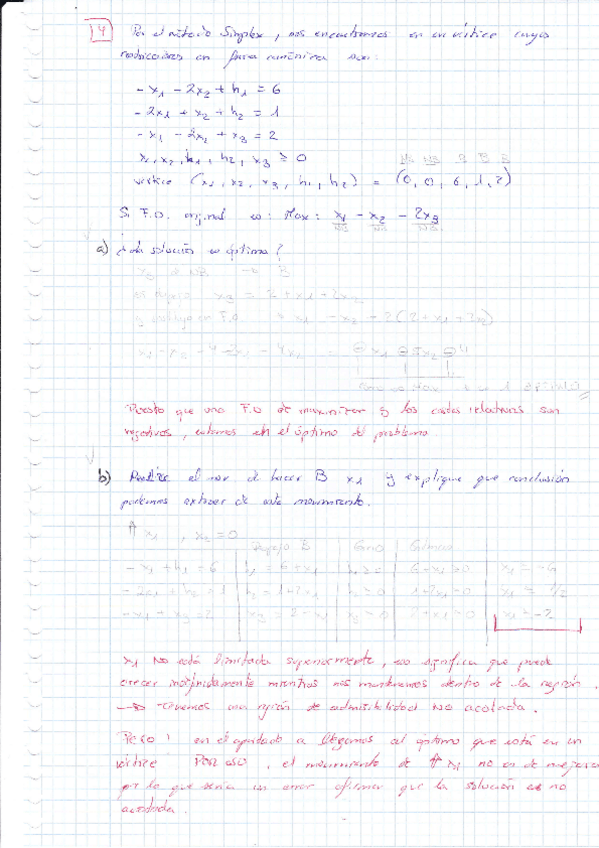 4 Por el método Simplex, nos encontramos en un vértice cuyas
restricciones en forma canónica son:
-x1 - 2x2 + h1 = 6
-2x1 + x2 + h2 = 1
-x1 - 2x2 + x3 = 2
x1, x2, h1, h2, x3 ≥ 0 NB NB B B B
vértice (x1, x2, x3, h1, h2) = (0, 0, 6, 1, 2)
Si F.O. original es: Max: x1 - x2 - 2x3
NB NB NB
a) ¿La solución es óptima?
x3 de NB → B
x3 = 2 + x1 + 2x2
F.O. x1 - x2 - 2(2 + x1 + 2x2)
x1 - x2 - 4 - 2x1 - 4x2 = ⊖x1 ⊖5x2 ⊖4
Puesto que una F.O de maximizar y los costes relativos son
negativos, estamos en el óptimo del problema.
b) el mov de hacer B x1 y explique que conclusión
podemos extraer de este movimiento.
↑ x1, x2 = 0
Despejo B Como
-x1 + h1 = 6 h1 = 6 + x1 h1 ≥ 0 x1 = -6
-2x1 + h2 = 1 h2 = 1 + 2x1 h2 ≥ 0 1 + 2x1 = 0
-x1 + x3 = 2 x3 ≥ 0 2 + x1 = 0 x1 = -2
x1 NO está limitada superiormente, eso significa que puede
crecer indefinidamente mientras nos mantenemos dentro de la región.
→ Tenemos una región de admisibilidad NO acotada.
PERO! en el apartado a llegamos al óptimo que está en un
vértice POR ESO, el movimiento de ↑ x1 no es de mejora
por lo que sería un error afirmar que la solución es no
acotada.